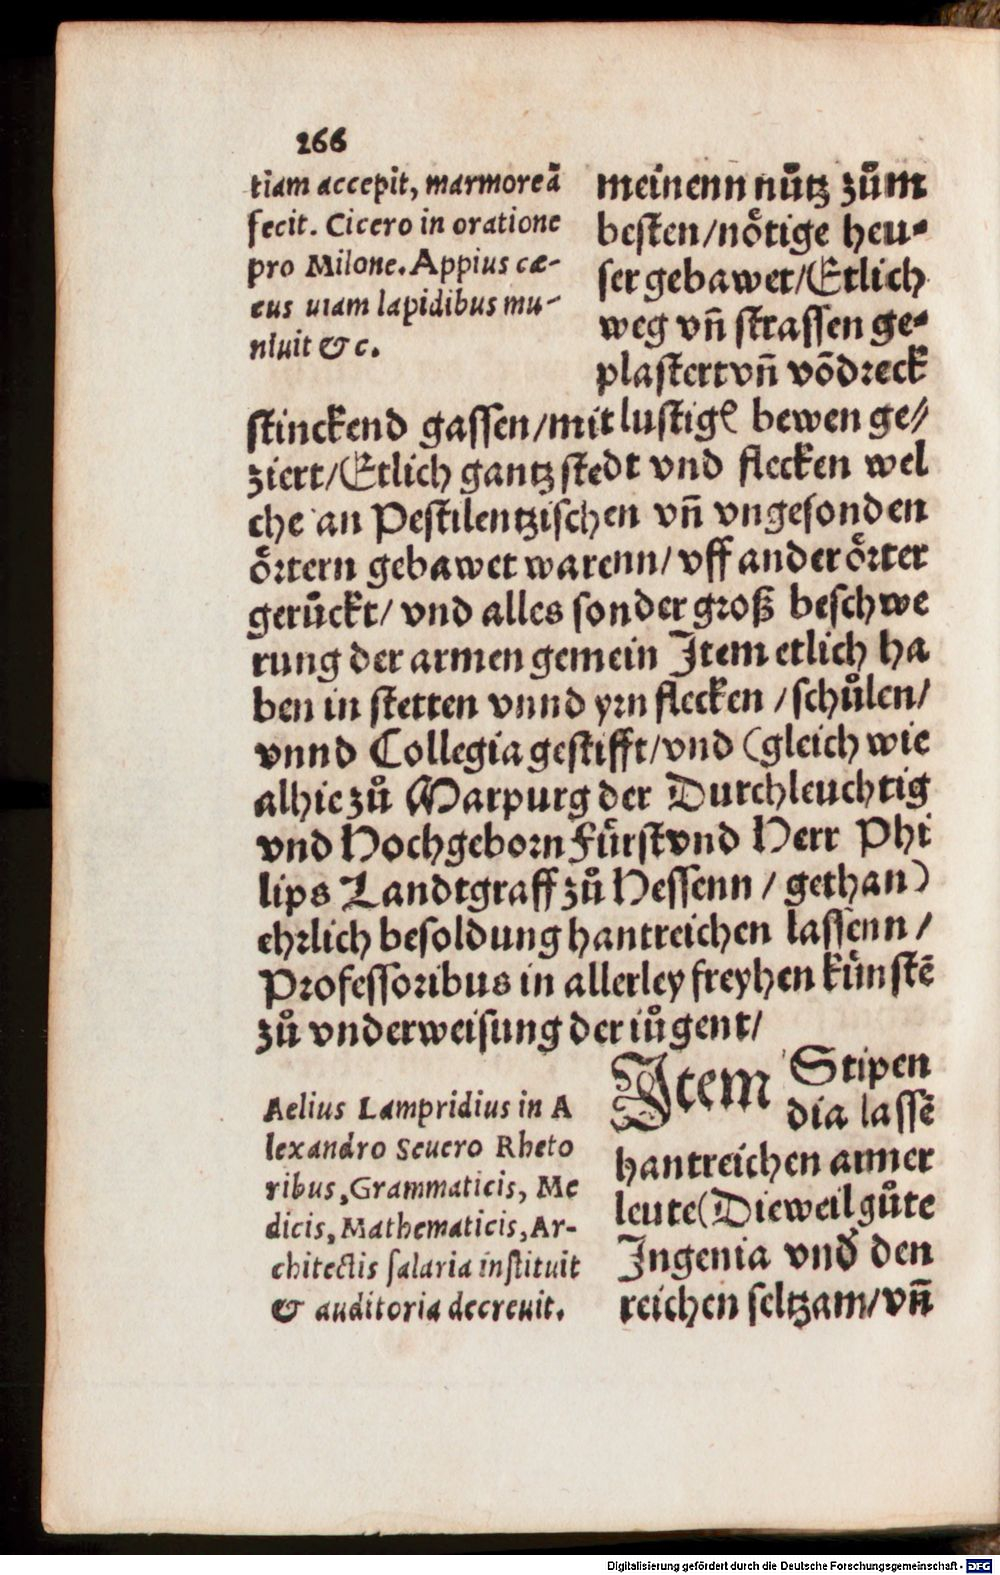 266
tiam accepit, marmoreã
fecit. Cicero in oratione
pro Milone. Appius cæ-
cus uiam lapidibus mu-
niuit & c.
meinenn nůtz zům
besten/nötige heu⸗
ser gebawet/Etlich
weg vñ strassen ge⸗
plastert vñ võ dreck
stinckend gassen/mit lustigẽ bewen ge⸗
ziert/Etlich gantz stedt vnd flecken wel
che an Pestilentzischen vñ vngesonden
örtern gebawet warenn/ vff ander örter
gerückt/ vnd alles sonder groß beschwe
rung der armen gemein Item etlich ha
ben in stetten vnnd yrn flecken /schůlen/
vnnd Collegia gestifft/vnd (gleich wie
alhie zů Marpurg der Durchleuchtig
vnd Hochgeborn Fürst vnd Herr Phi
lips Landtgraff zů Hessenn / gethan)
ehrlich besoldung hantreichen lassenn /
Professoribus in allerley freyhen künstẽ
zů vnderweisung der iůgent/
Aelius Lampridius in A
lexandro Seuero Rheto
ribus, Grammaticis, Me
dicis, Mathematicis, Ar-
chitectis salaria instituit
& auditoria decreuit.
Item Stipen
dia lassẽ
hantreichen armer
leute (Dieweil gůte
Ingenia vnd den
reichen seltzam/vñ
Digitalisierung gefördert durch die Deutsche Forschungsgemeinschaft - DFG